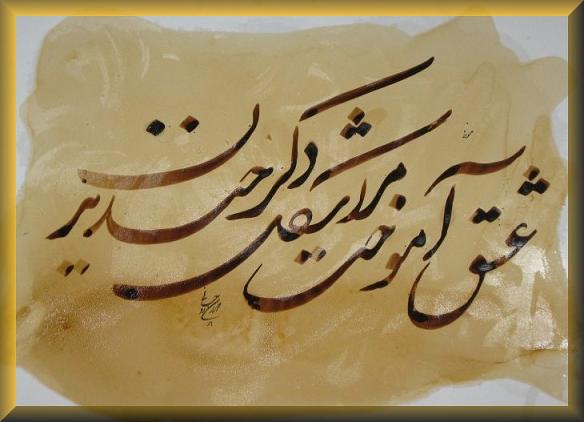 عشق آموخت مرا شکل دگر خندیدن